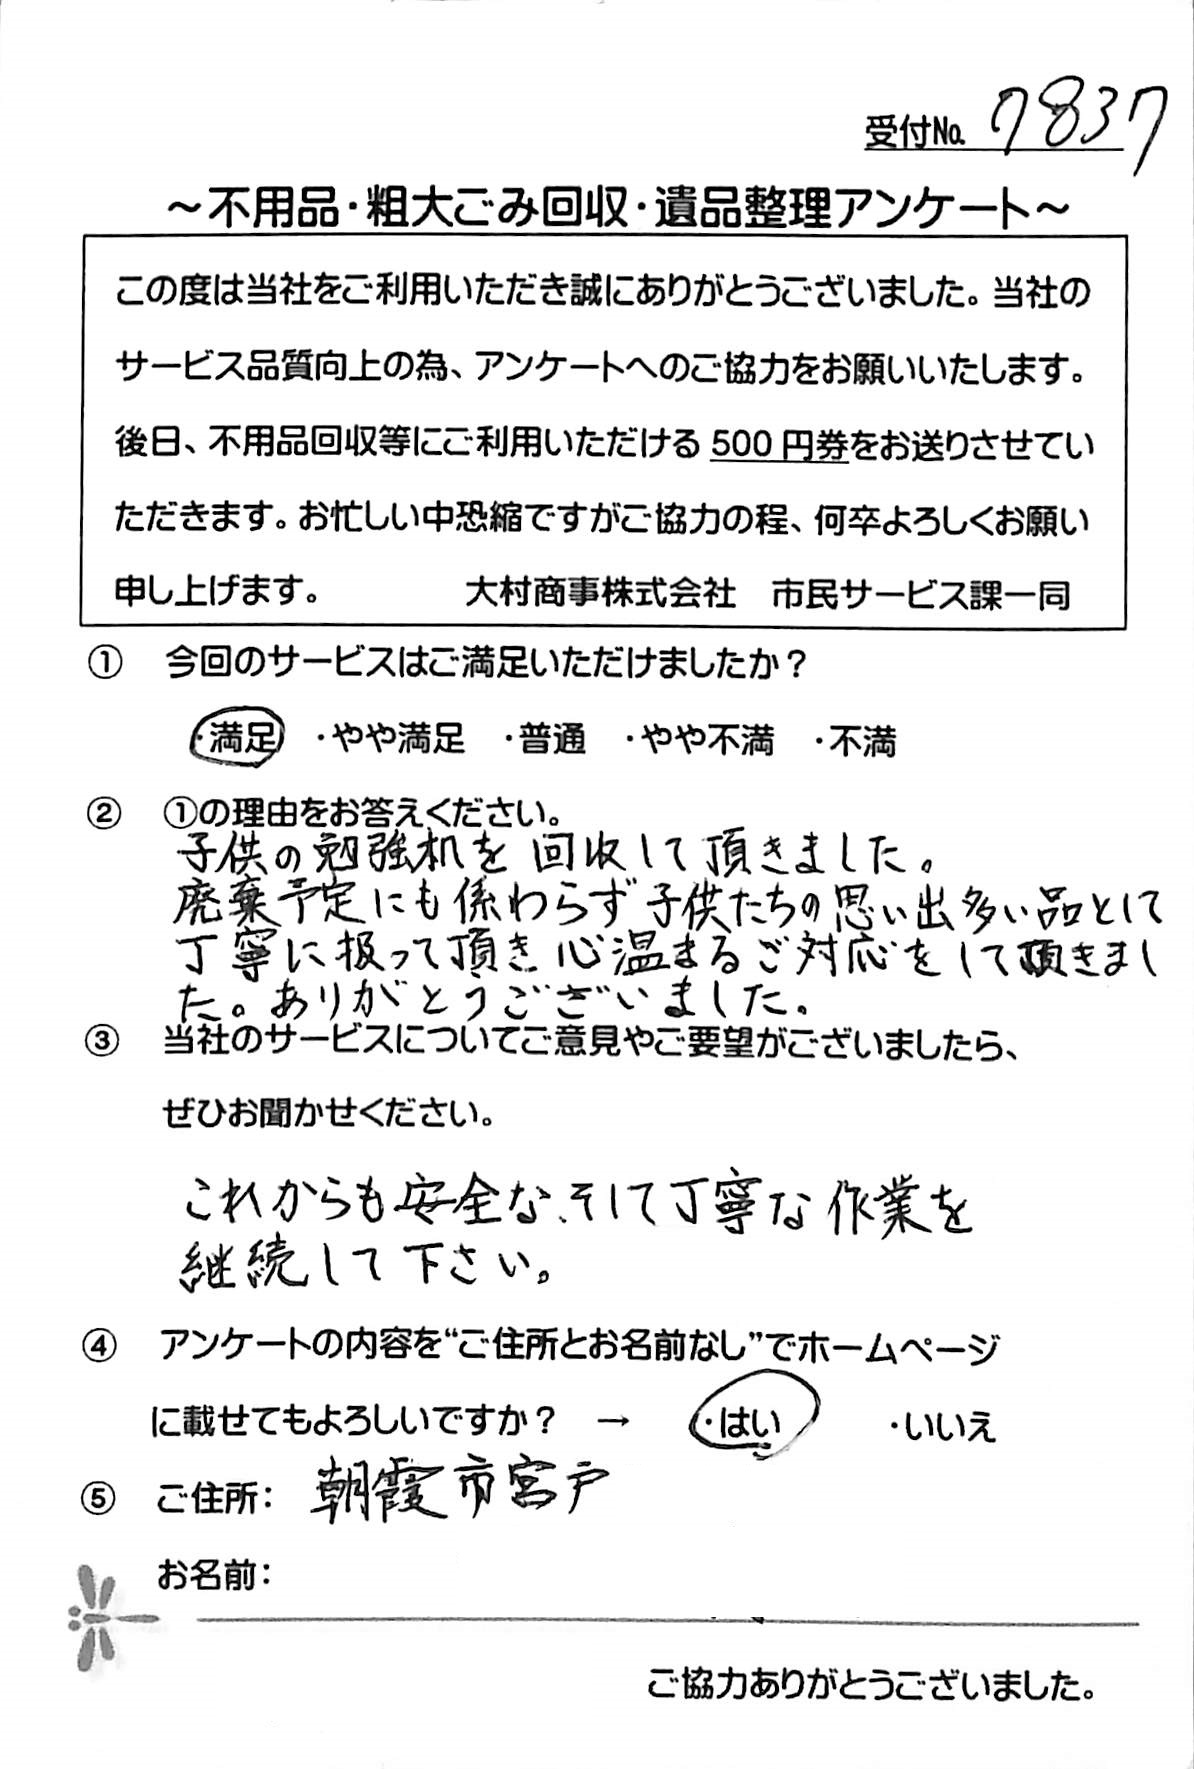 受付No. 7837
～不用品・粗大ごみ回収・遺品整理アンケート～
この度は当社をご利用いただき誠にありがとうございました。当社の
サービス品質向上の為、アンケートへのご協力をお願いいたします。
後日、不用品回収等にご利用いただける 500 円券をお送りさせてい
ただきます。お忙しい中恐縮ですがご協力の程、何卒よろしくお願い
申し上げます。 大村商事株式会社 市民サービス課一同
① 今回のサービスはご満足いただけましたか？
・満足 ・やや満足 ・普通 ・やや不満 ・不満
② ①の理由をお答えください。
子供の勉強机を回収して頂きました。
廃棄予定にも係わらず子供たちの思い出多い品として
丁寧に扱って頂き心温まるご対応をして頂きまし
た。ありがとうございました。
③ 当社のサービスについてご意見やご要望がございましたら、
ぜひお聞かせください。
これからも安全な、そして丁寧な作業を
継続して下さい。
④ アンケートの内容を“ご住所とお名前なし”でホームページ
に載せてもよろしいですか？ → ・はい ・いいえ
⑤ ご住所： 朝霞市宮戸
お名前：
ご協力ありがとうございました。